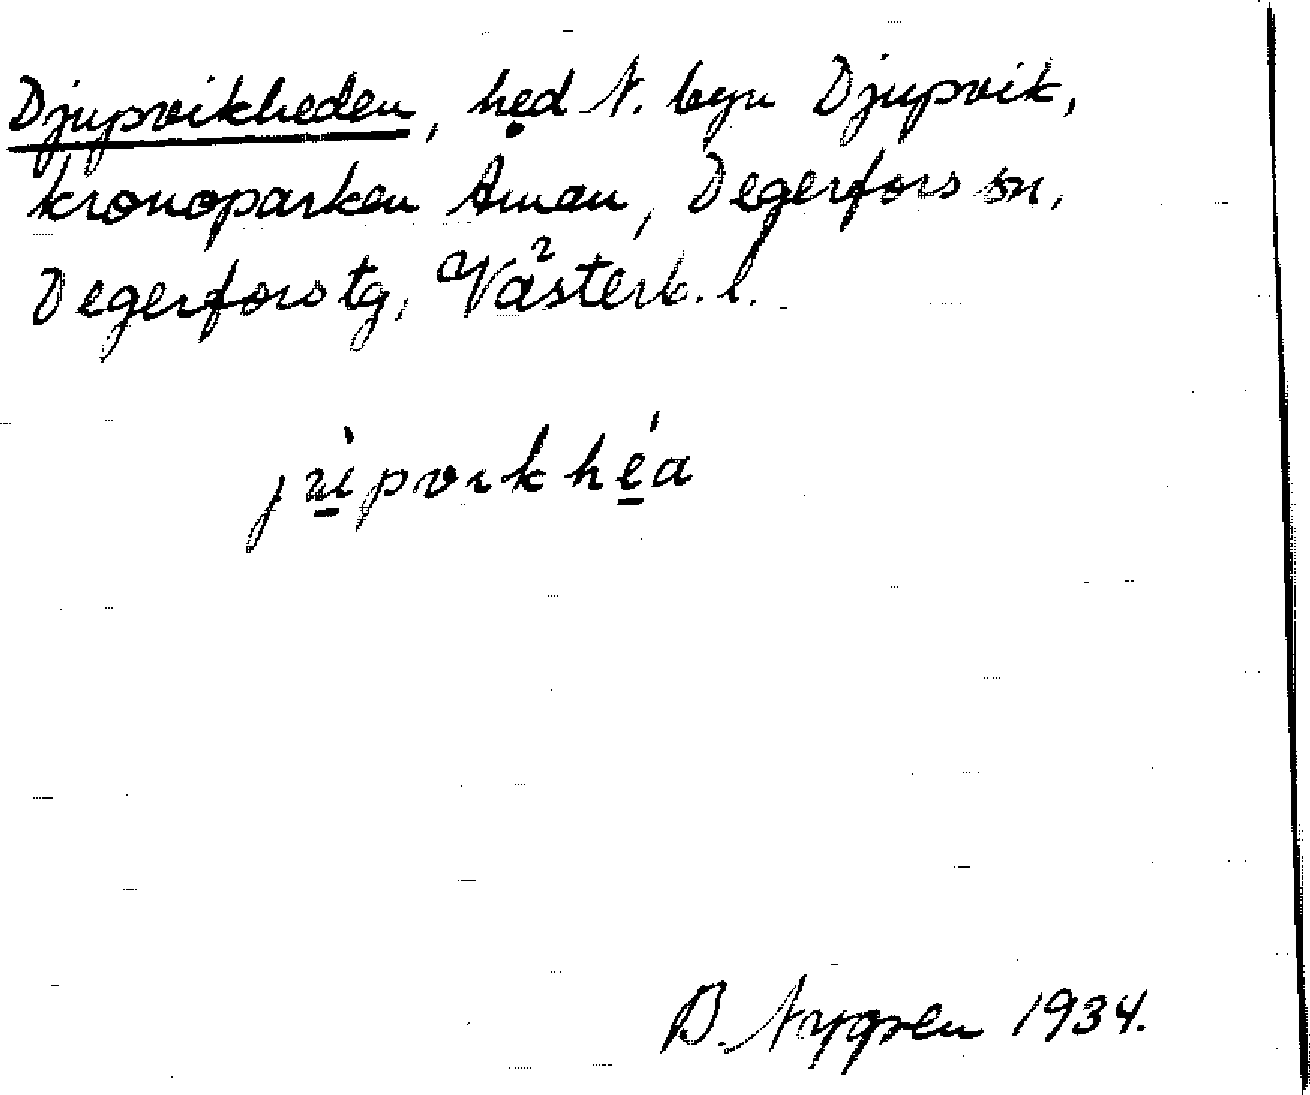 Djupvikheden, hed N. byn Djupvik,
kronoparken Åman, Degerfors sn,
Degerfors tg, Västerb. l.
B. Nygren 1934.